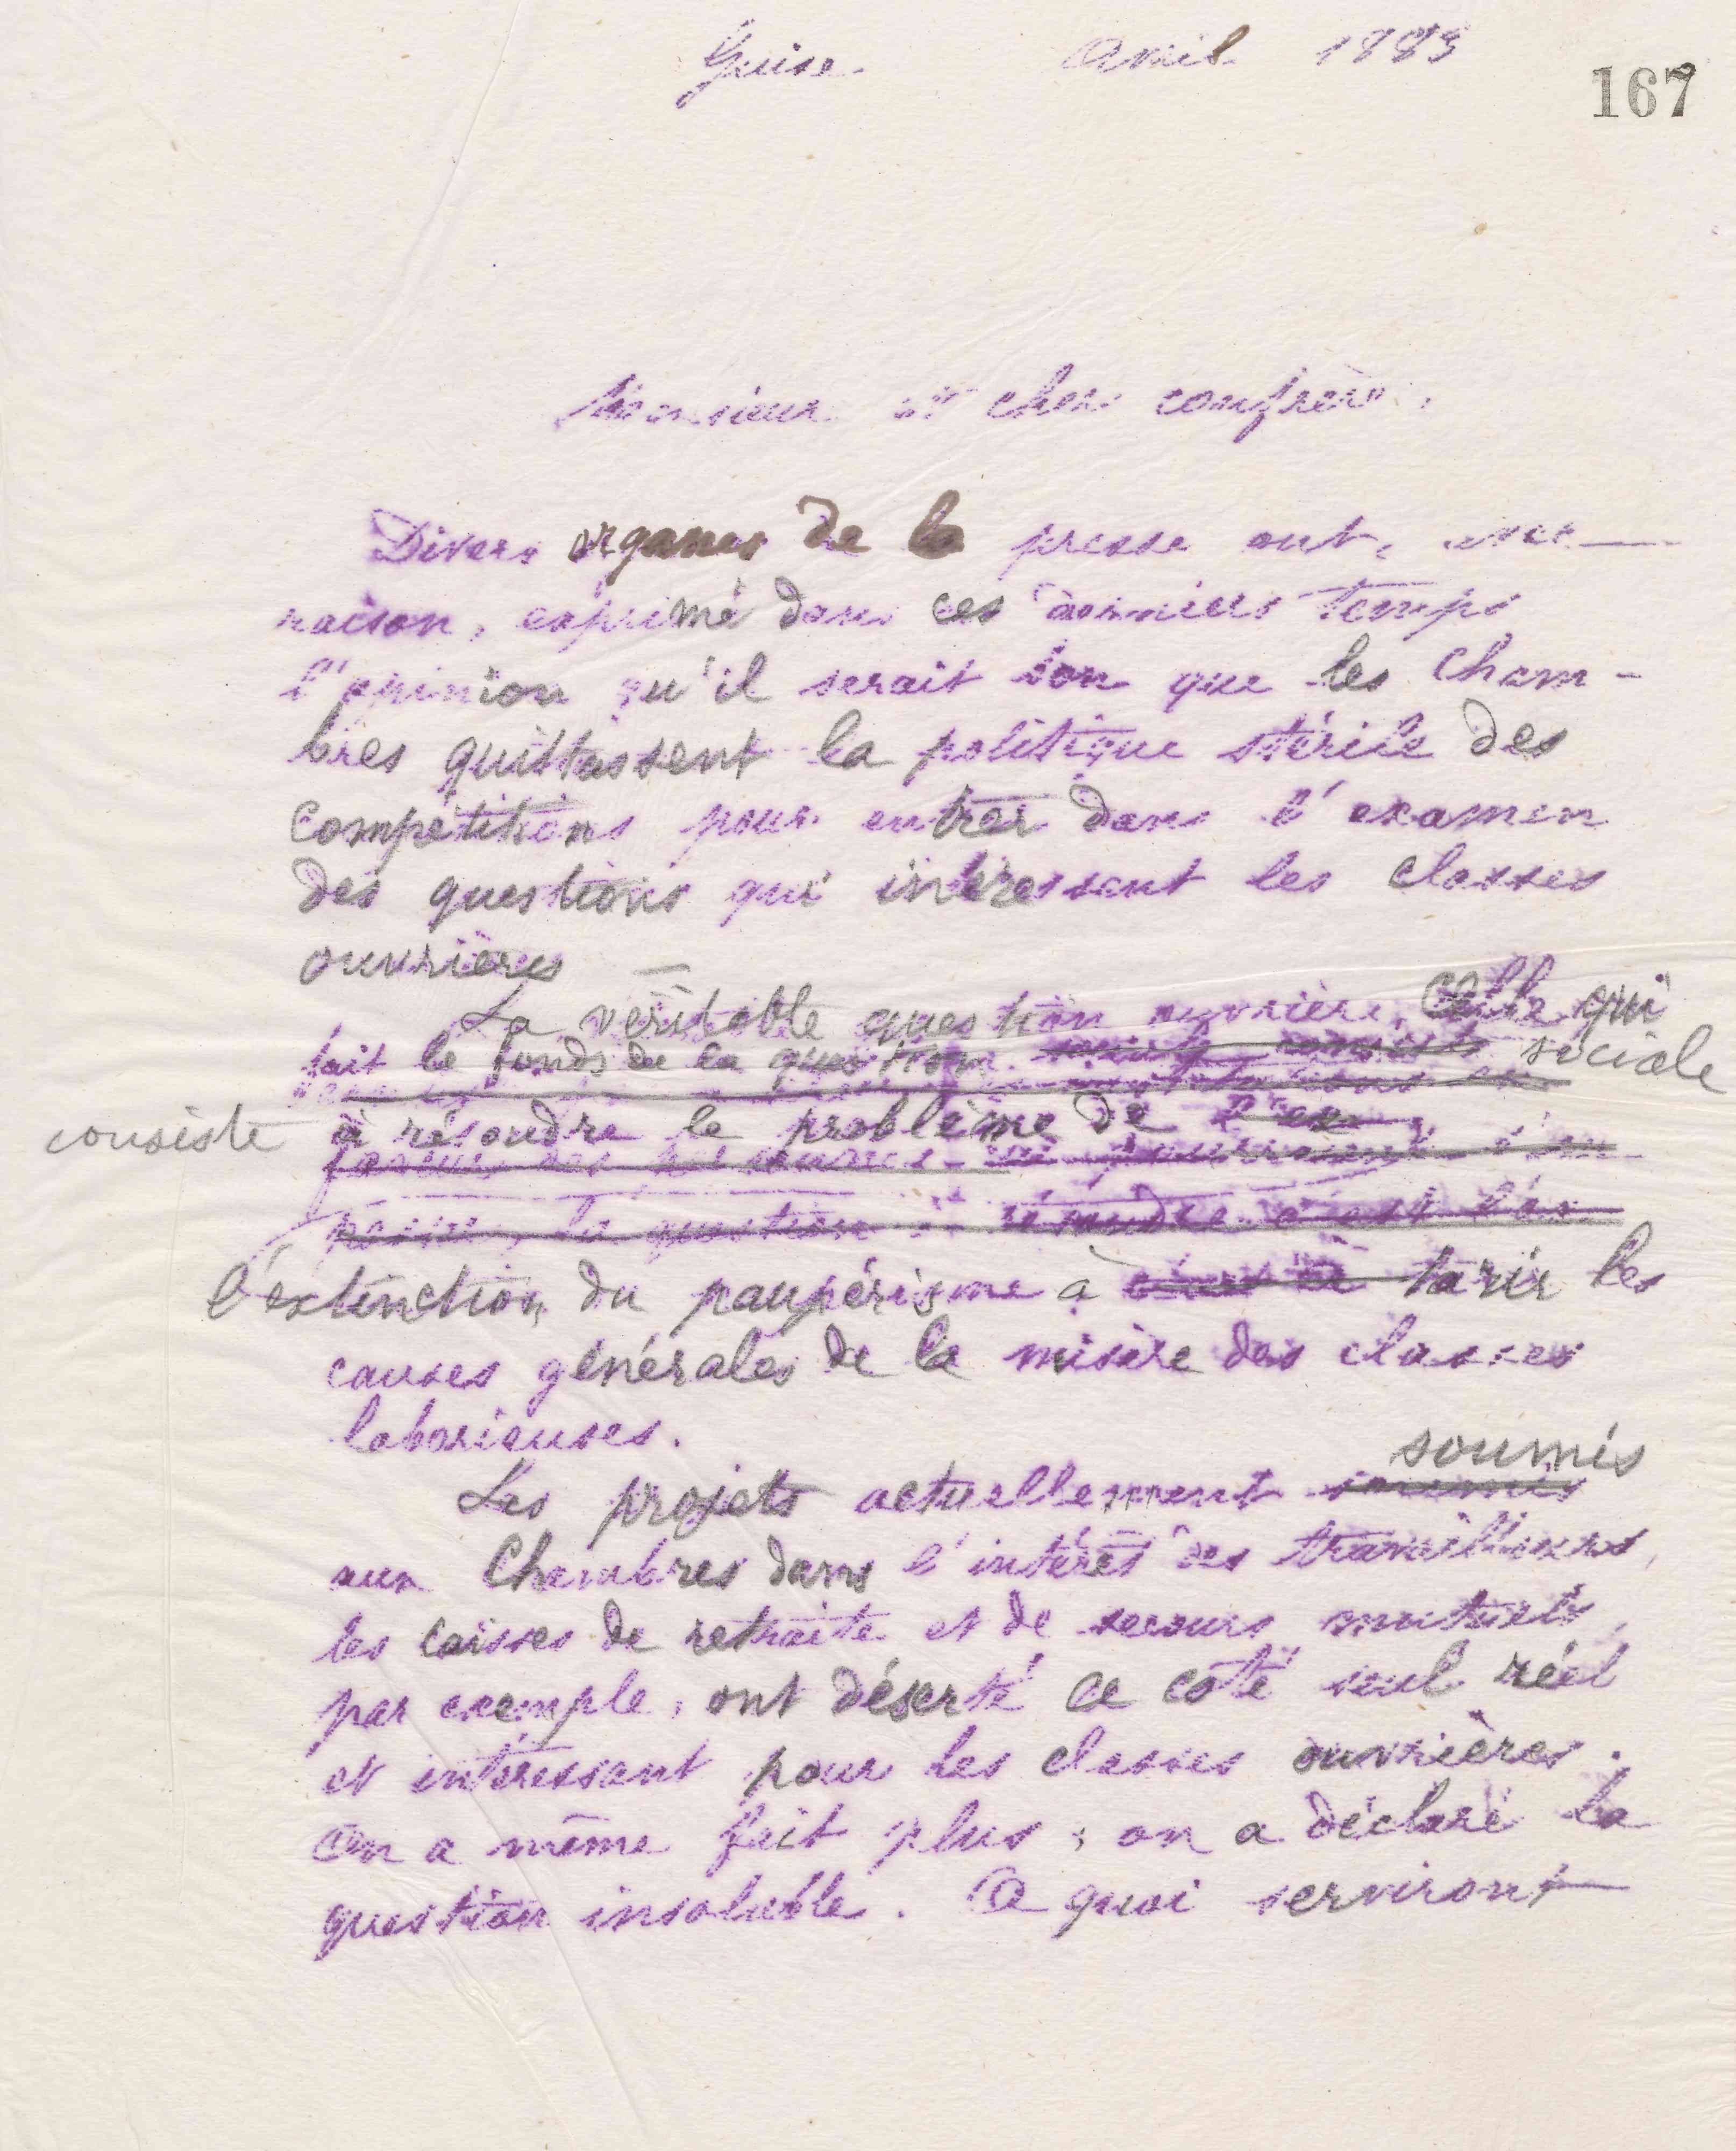 Guise Avril 1883
167
Monsieur et cher confrère,
Divers organes de la presse ont, avec
raison, exprimé dans ces derniers temps
l'opinion qu'il serait bon que les Cham-
bres quittassent la politique stérile des
compétitions pour entrer dans l'examen
des questions qui intéressent les classes
ouvrières
La véritable question ouvrière, celle qui
fait le fonds de la question sociale
consiste à résoudre le problème de
l'extinction du paupérisme à tarir les
causes générales de la misère des classes
laborieuses.
soumis
Les projets actuellement soumis
aux Chambres dans l'intérêt des travailleurs,
les caisses de retraite et de secours mutuels,
par exemple, ont déserté ce côté seul réel
et intéressant pour les classes ouvrières.
On a même fait plus ; on a déclaré la
question insoluble. A quoi serviront